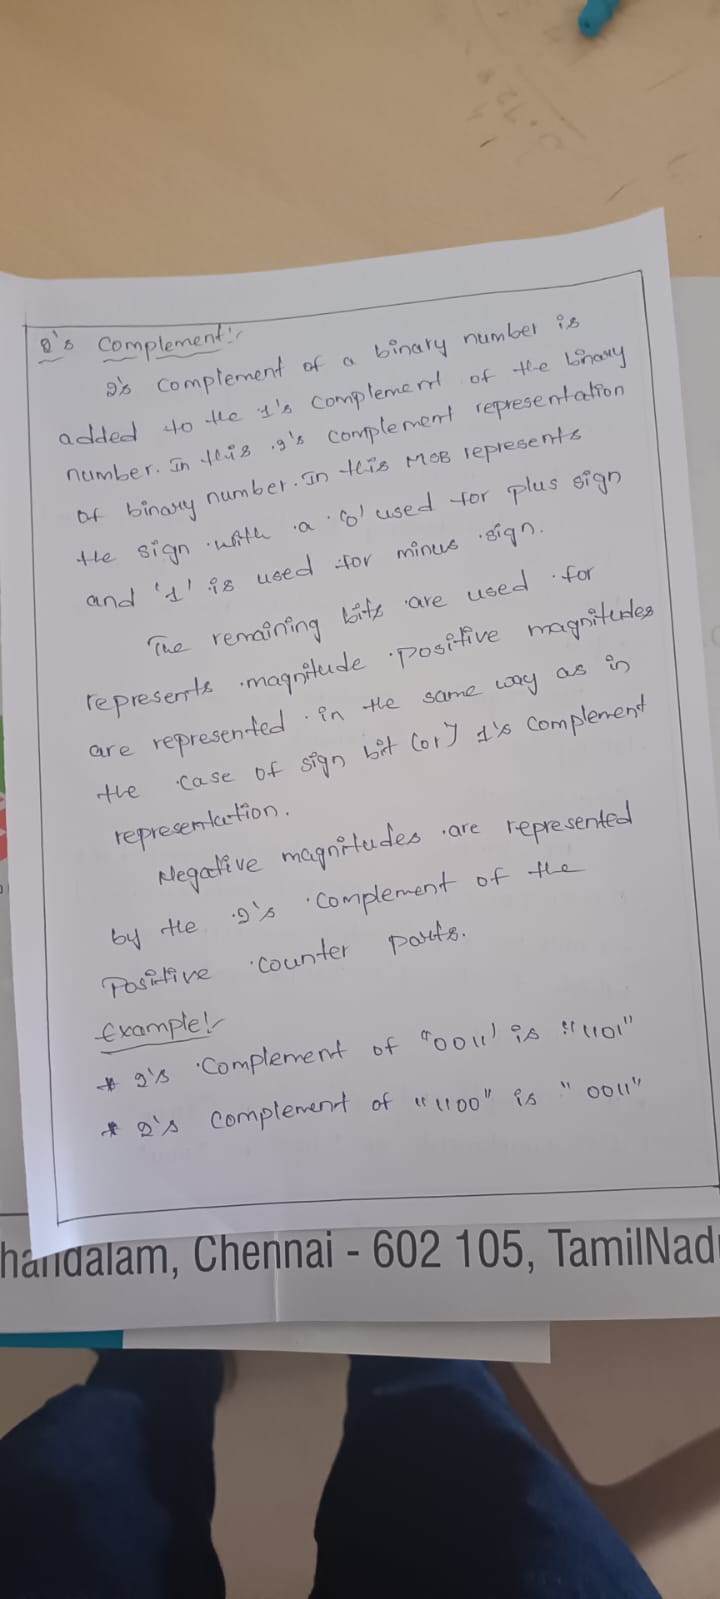 2's Complement:-
2's complement of a binary number is
added to the 1's complement of the binary
number. In this 2's complement representation
of binary number. In this MSB represents
the sign with a '0' used for plus sign
and '1' is used for minus sign.
The remaining bits are used for
represents magnitude positive magnitudes
are represented in the same way as in
the case of sign bit (or) 1's complement
representation.
Negative magnitudes are represented
by the 2's complement of the
Positive counter parts.
Example:-
* 2's Complement of "0011' is "1101"
* 2's complement of "1100" is "0011"
handalam, Chennai - 602 105, TamilNad